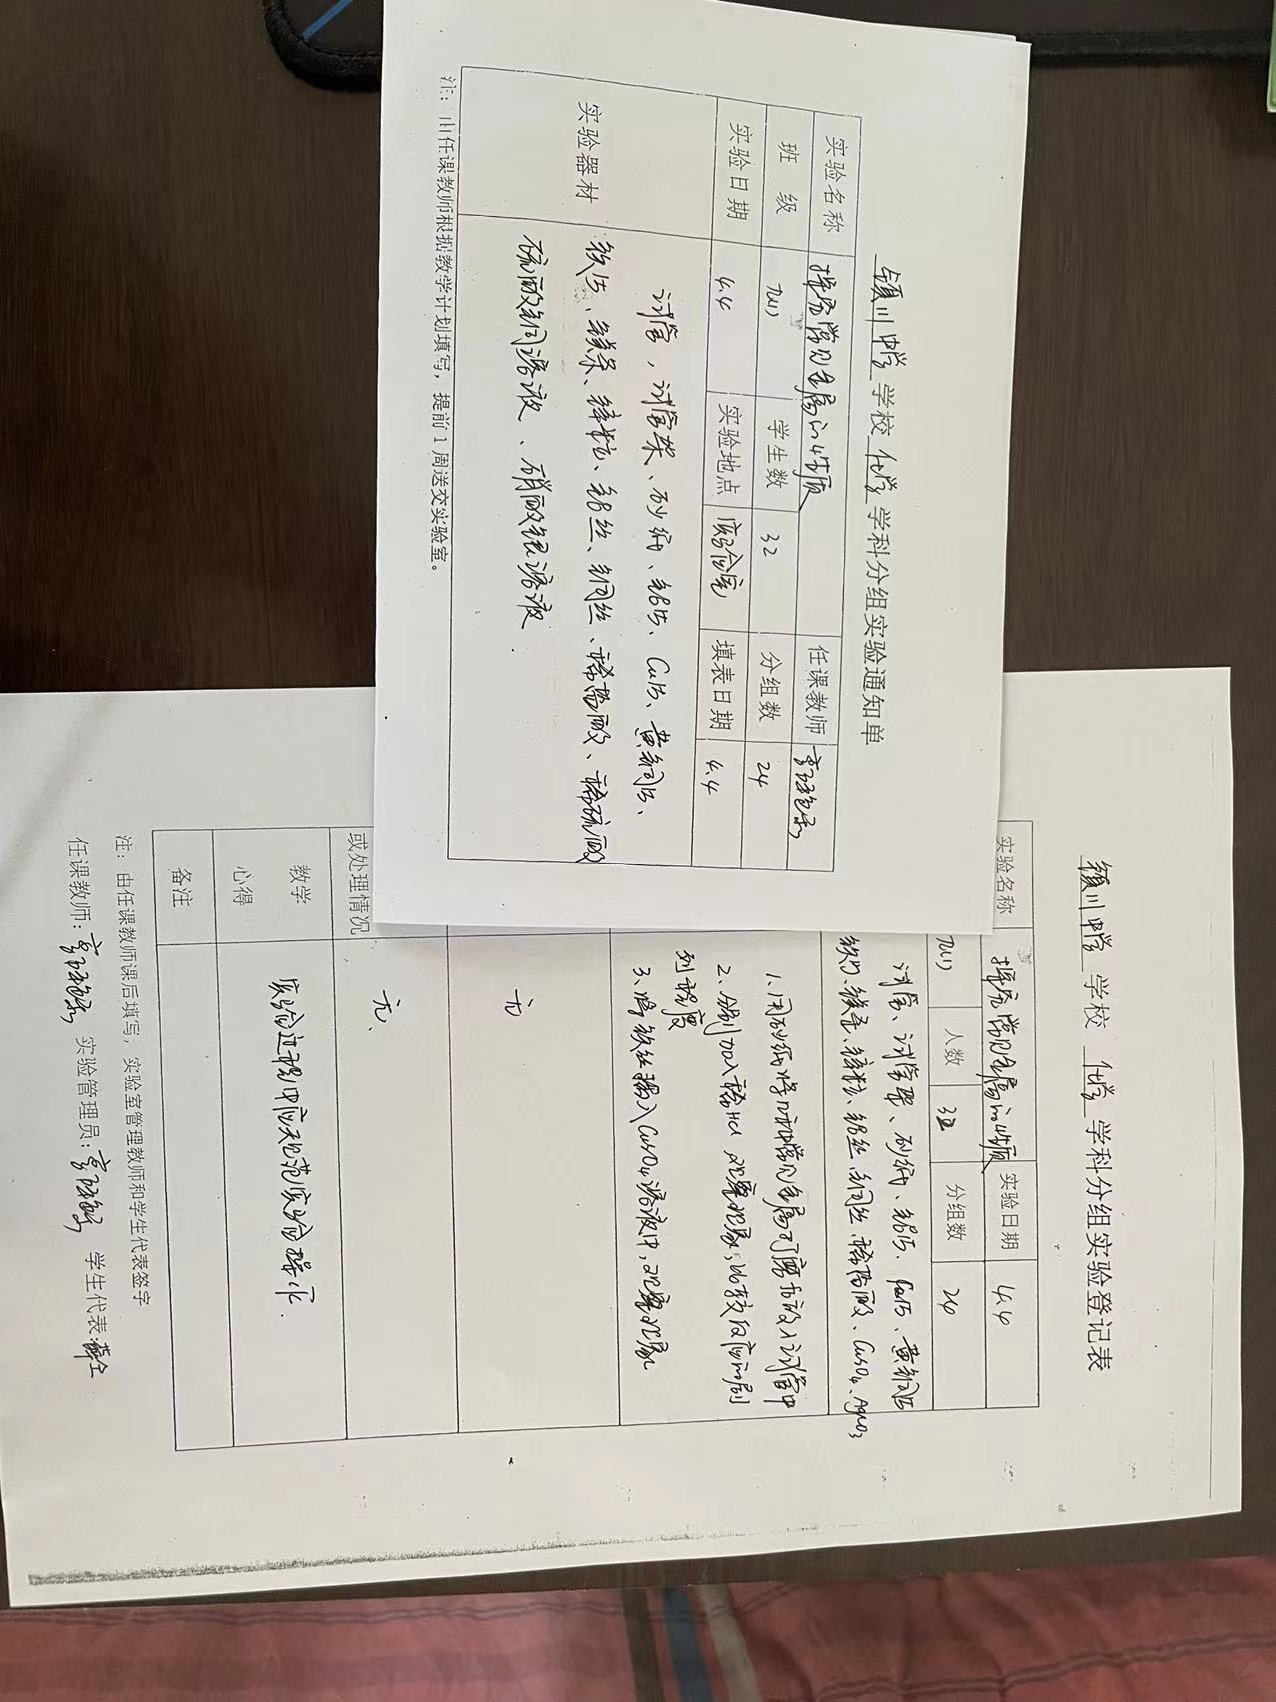 颍川中学 学校 化学 学科分组实验通知单
实验名称 探究常见金属的性质 任课教师
班 级 九(1) 学生数 32 分组数 24
实验日期 4.4 实验地点 实验室 填表日期 4.4
实验器材
试管、试管架、砂纸、铝片、Cu片、黄铜片、
铁片、镁条、锌粒、铝丝、铜丝、稀盐酸、稀硫酸
硫酸铜溶液、硝酸银溶液
注：由任课教师根据教学计划填写，提前1周送交实验室。
颍川中学 学校 化学 学科分组实验登记表
实验名称 探究常见金属的性质 实验日期 4.4
九(1) 人数 32 分组数 24
试管、试管架、砂纸、铝片、Cu片、黄铜片
镁条、锌粒、铝丝、铜丝、稀盐酸、CuSO4、AgNO3
1.用砂纸将常见金属打磨并放入试管中
2.分别加入稀HCl 观察现象；比较反应的剧
列程度
3.将铁丝插入CuSO4溶液中，观察现象
无
或处理情况 无、
教学
心得
实验过程中应规范实验操作
备注
注：由任课教师课后填写，实验室管理教师和学生代表签字
任课教师： 实验管理员： 学生代表：